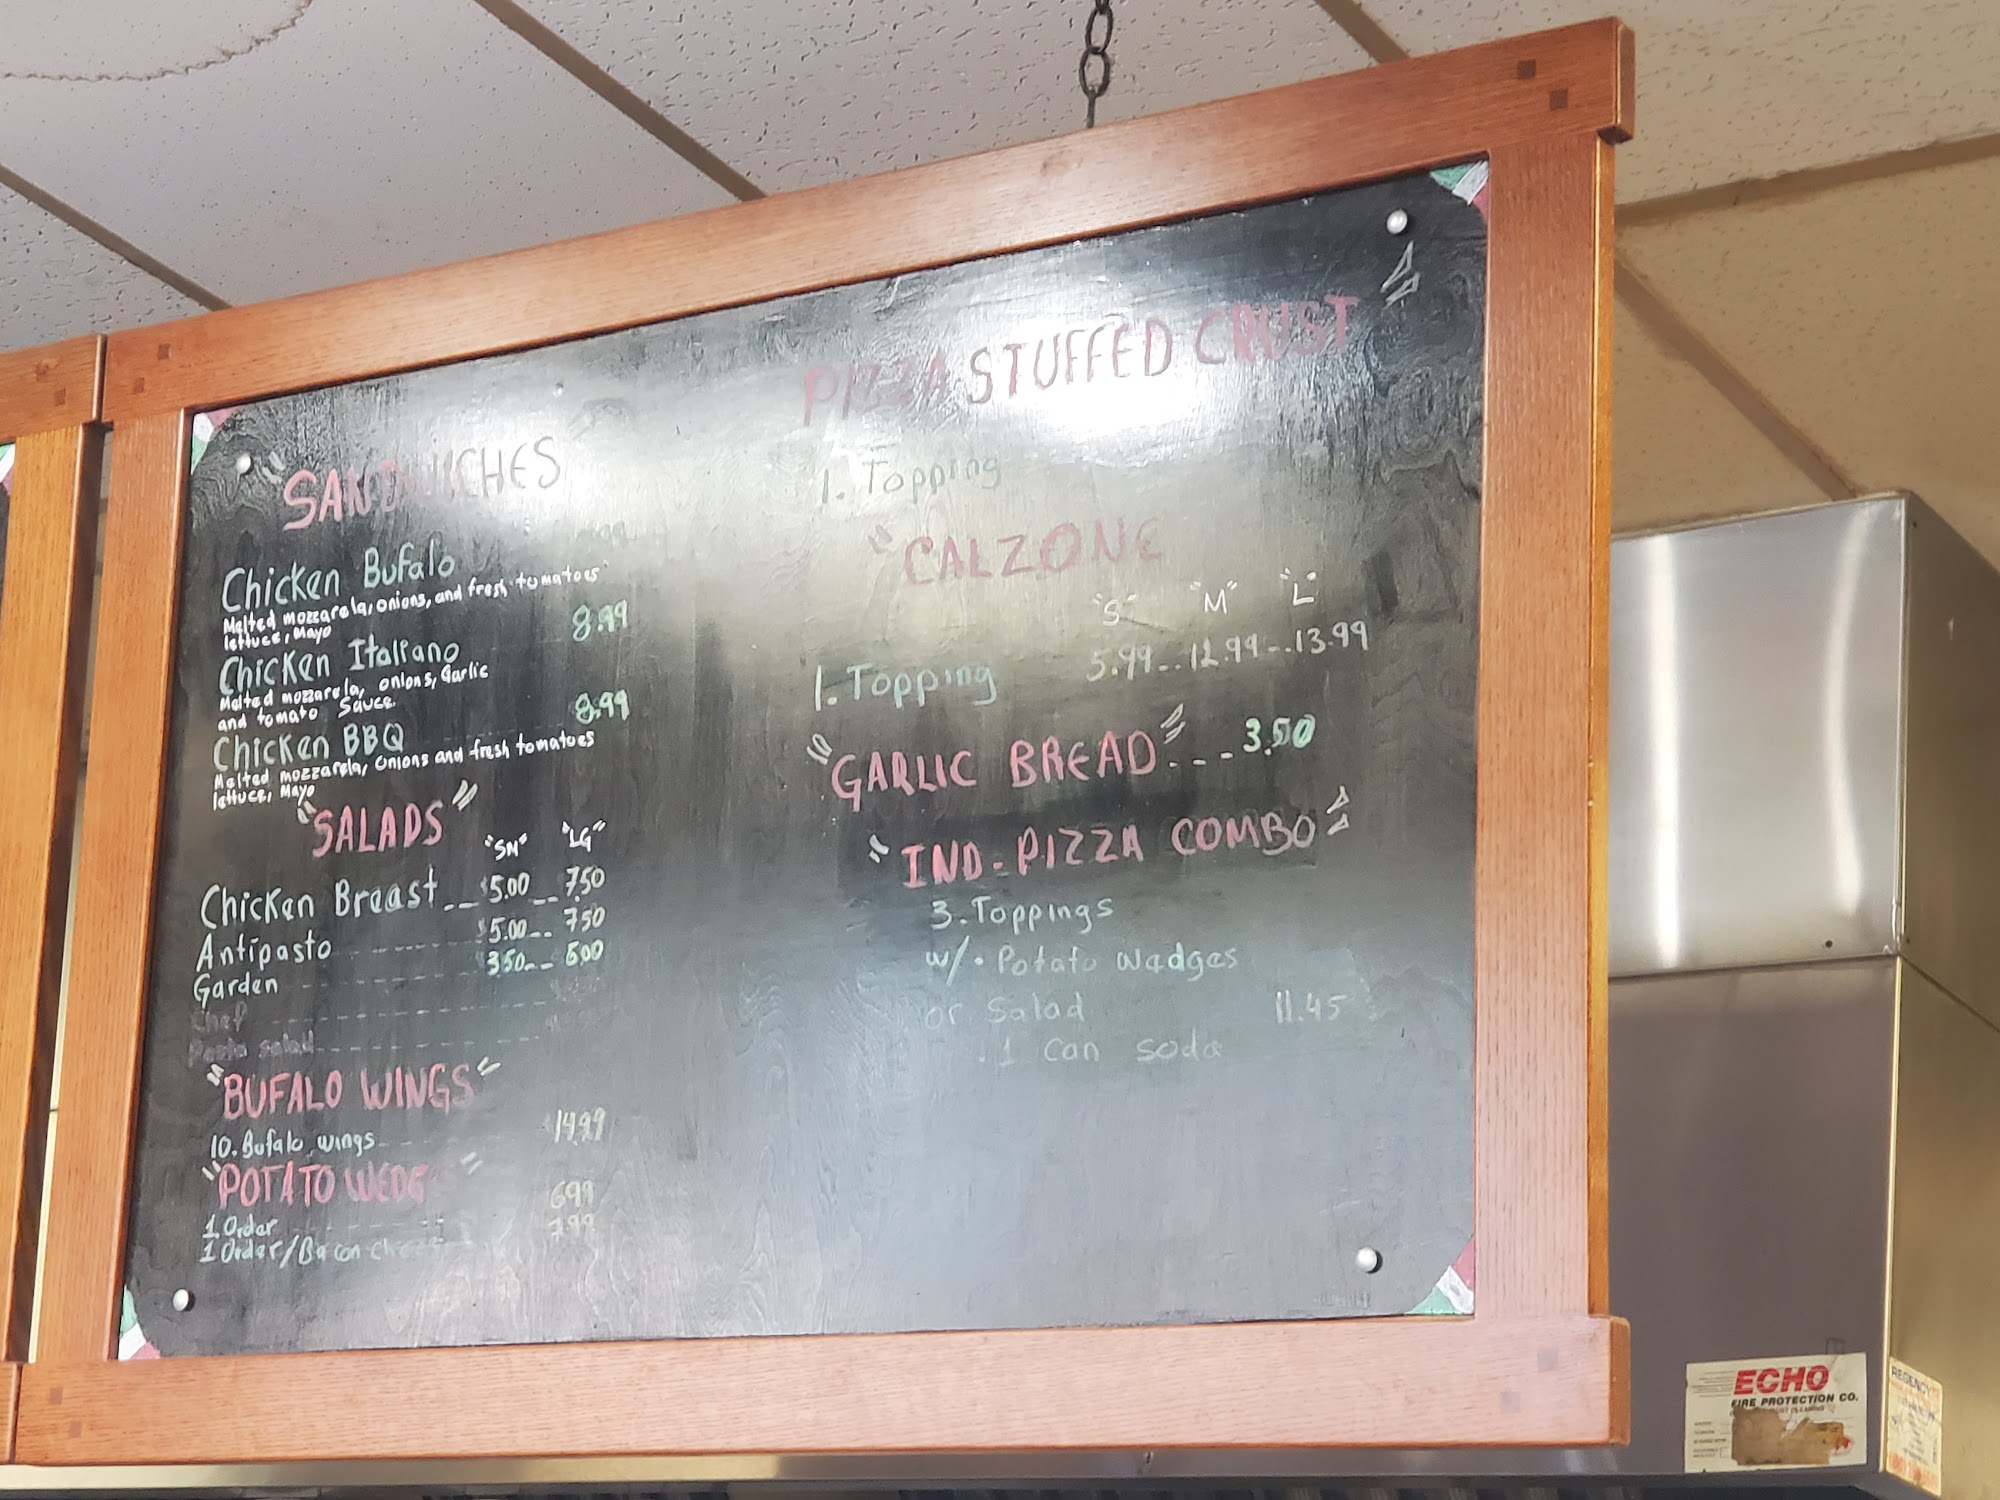 "SANDWICHES
Chicken Bufalo
Melted mozzarela, onions, and fresh tomatoes
lettuce, Mayo
8.99
Chicken Italiano
Melted mozzarela, onions, Garlic
and tomato Sauce.
8.99
Chicken BBQ
Melted mozzarela, onions and fresh tomatoes
lettuce, Mayo
"SALADS"
"SM" "LG"
Chicken Breast __ $5.00 __ 7.50
Antipasto ------ $5.00 __ 7.50
Garden ------ 3.50 __
Chef
Pasta salad
"BUFALO WINGS"
10. Bufalo wings 14.99
"POTATO WEDG"
6.99
1 Order
7.99
1 Order/Bacon
PIZZA STUFFED CRUST"
1. Topping
"CALZONE
"S" "M" "L"
1. Topping 5.99 -- 12.99 -- 13.99
"GARLIC BREAD" --- 3.50
"IND - PIZZA COMBO"
3. Toppings
w/. Potato Wedges
or Salad 11.45
. 1 Can soda
ECHO
FIRE PROTECTION CO.
REGENCY